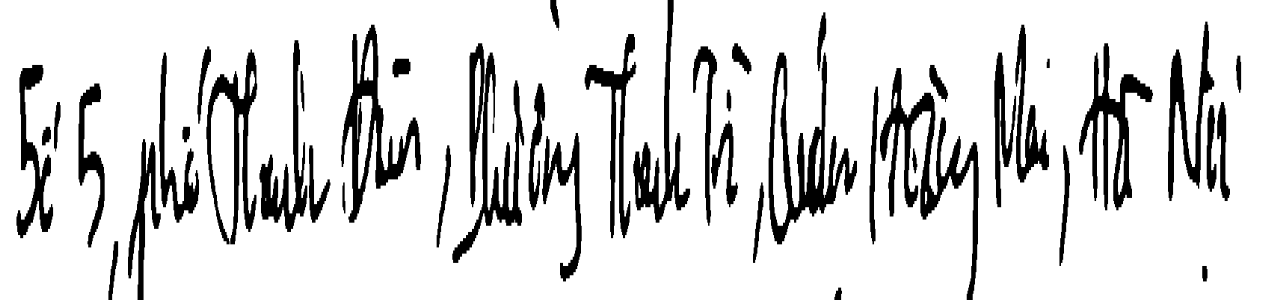 Số 5, phố Thanh Đàm, Phường Thanh Trì, Quận Hoàng Mai, Hà Nội